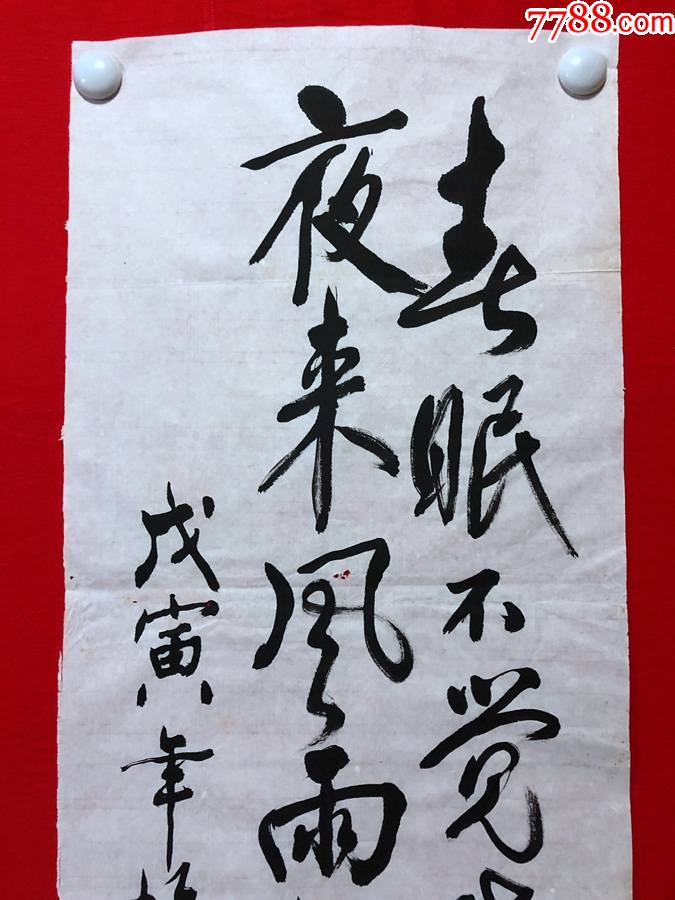 7788.com
春眠不觉
夜来風雨
戊寅年